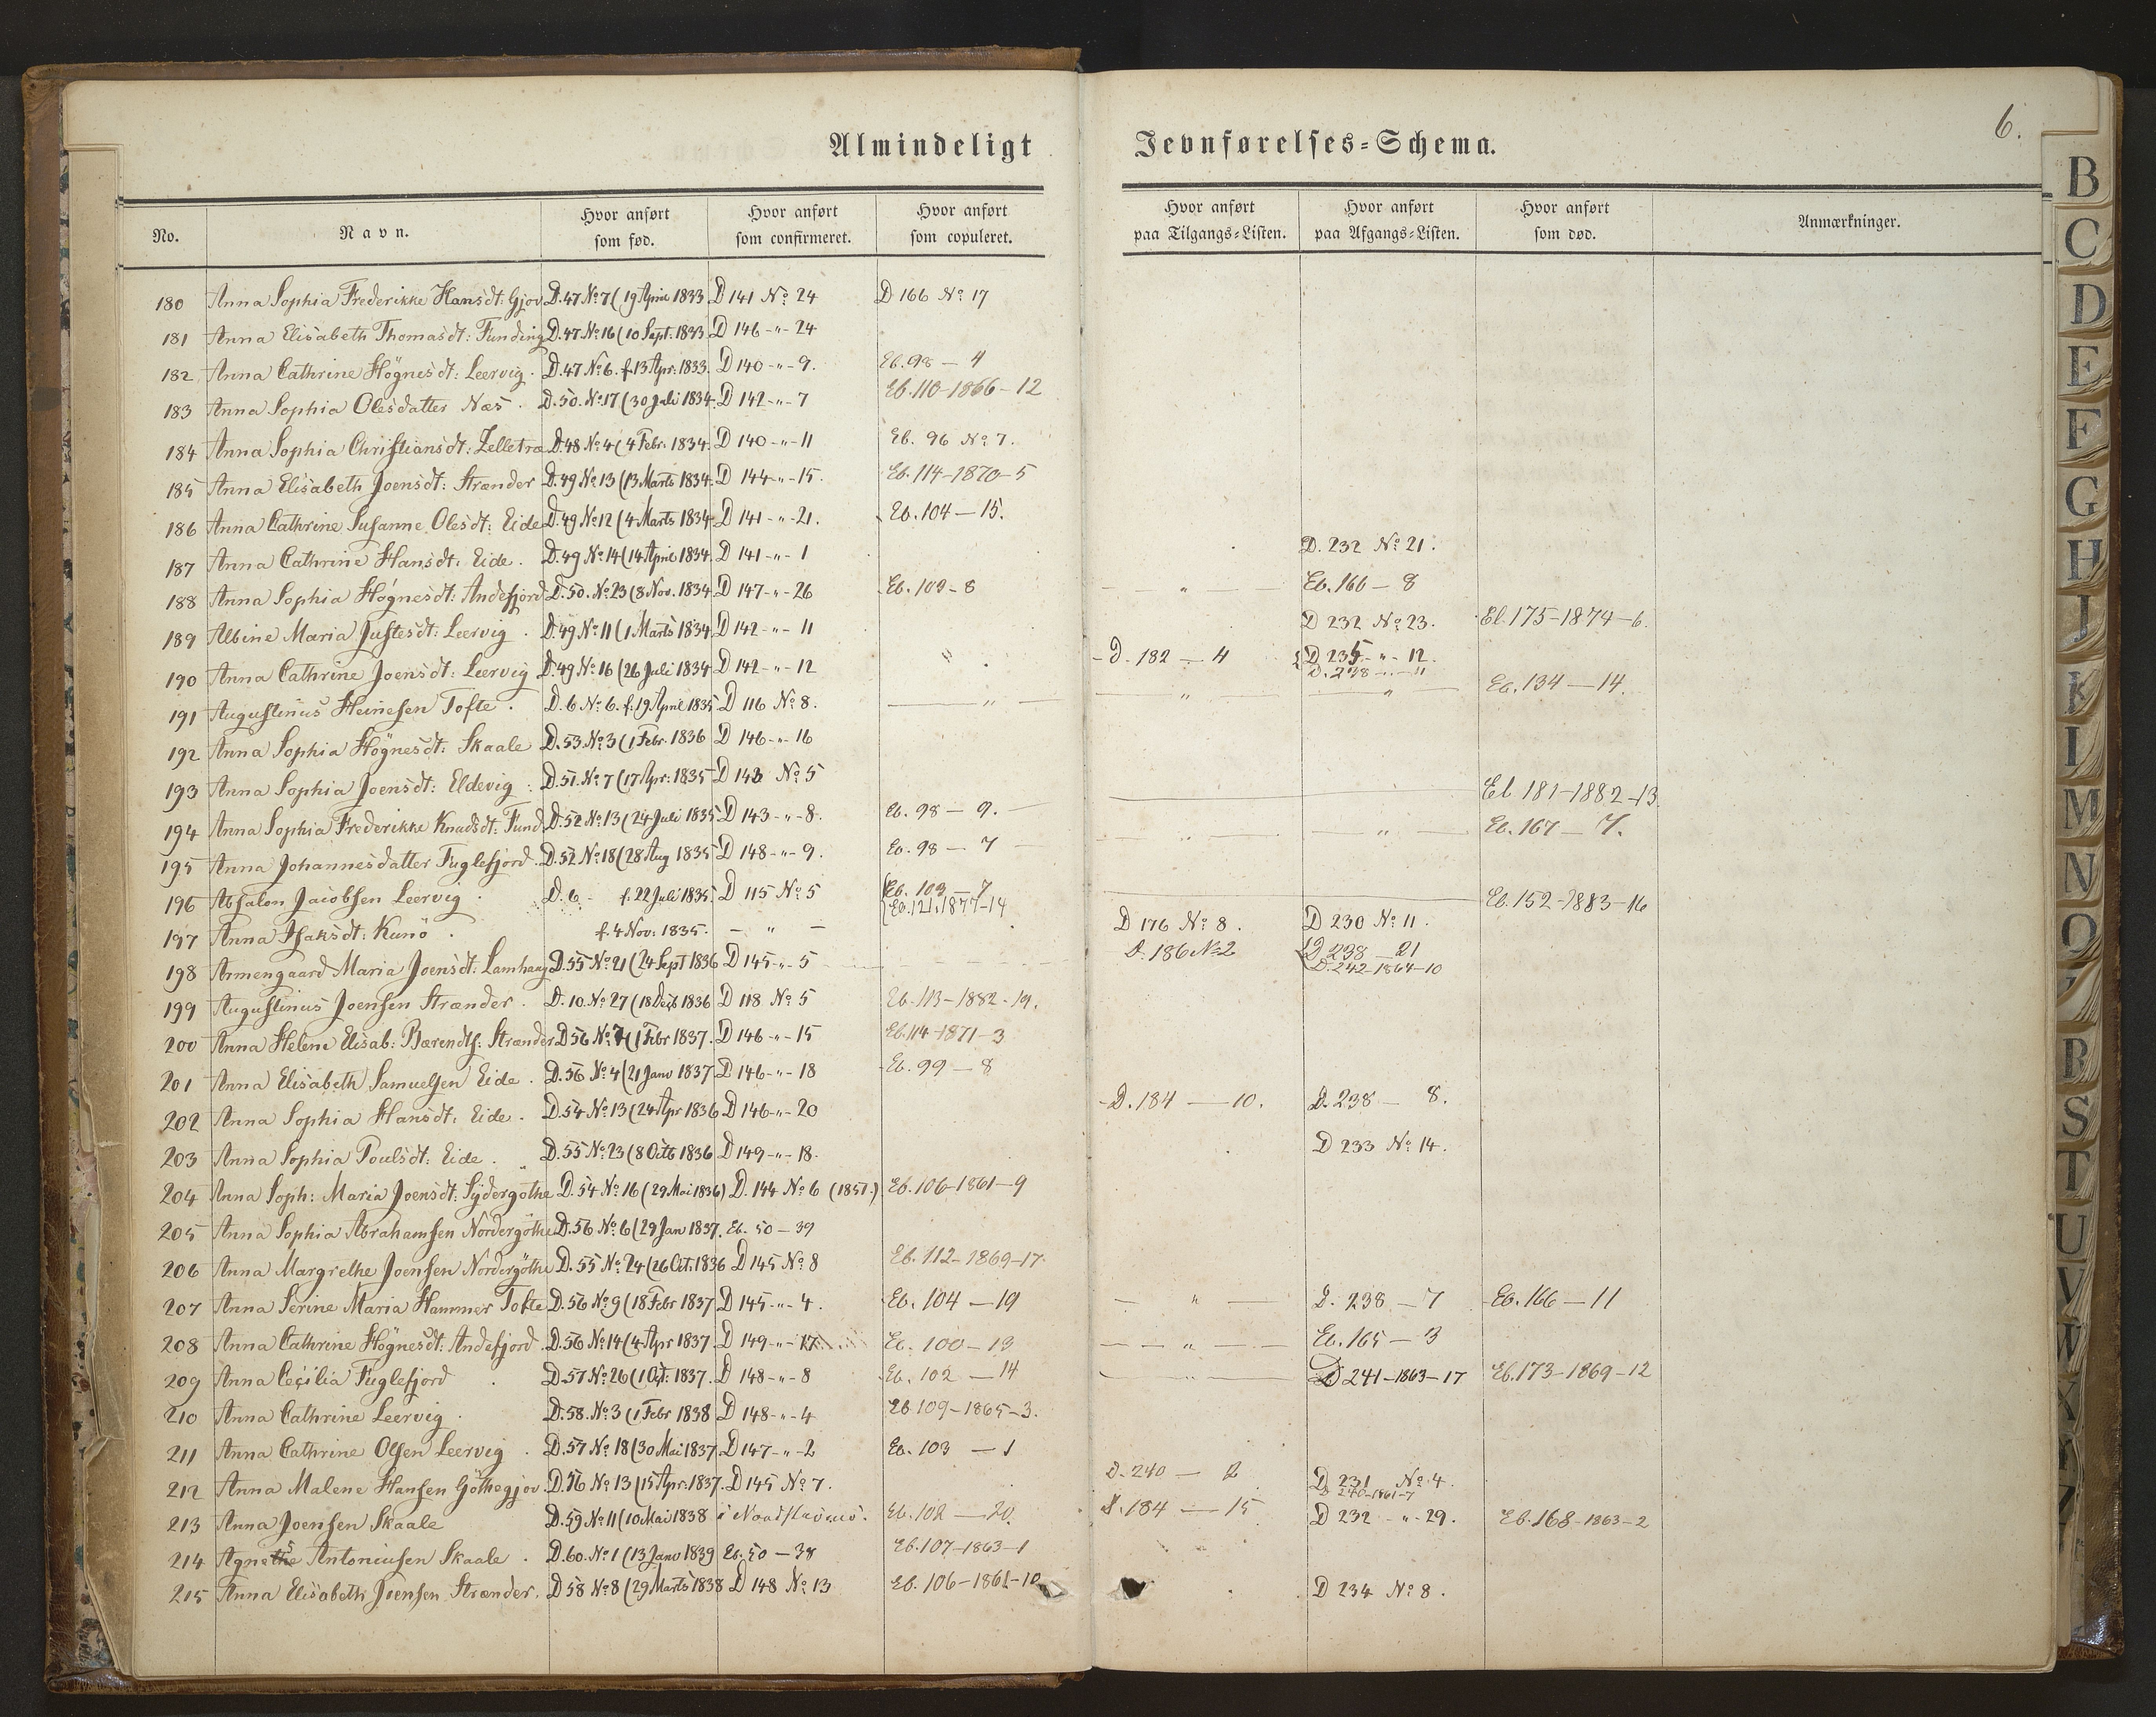 6.
Almindeligt Jevnførelses-Schema.
No. Navn. Hvor anført som fød. Hvor anført som confirmeret. Hvor anført som copuleret. Hvor anført paa Tilgangs-Listen. Hvor anført paa Afgangs-Listen. Hvor anført som død. Anmærkninger.
180 Anna Sophia Frederikke Hansdt: Gjov D.47 No 7 (19 April 1833 D 141 No 24 D 166 No 17
181 Anna Elisabeth Thomasdt: Funding D.47 No 16 (10 Sept. 1833 D 146 -"- 24
182 Anna Cathrine Högnesdt: Leervig. D.47 No 6. f. 13 Apr: 1833. D 140 -"- 9. Eb. 98 — 4
183 Anna Sophia Olesdatter Næs. D.50. No 17 (30 Juli 1834. D 142 -"- 7 Eb. 110-1866-12
184 Anna Sophia Christiansdt: Zelletræ D.48 No 4 (4 Febr. 1834. D 140 -"- 11 Eb. 96 No 7.
185 Anna Elisabeth Joensdt: Strænder D.49 No 13 (13 Marts 1834. D 144 -"- 15. Eb. 114-1870-5
186 Anna Cathrine Susanne Olesdt: Eide D.49 No 12 (4 Marts 1834 D 141 -"- 21. Eb. 104 — 15.
187 Anna Cathrine Hansdt: Eide. D.49 No 14 (14 April 1834. D 141 -"- 1 D. 232 No 21.
188 Anna Sophia Högnesdt: Andefjord D.50. No 23 (8 Nov. 1834 D 147 -"- 26 Eb. 109-8 — " — Eb. 166 — 8
189 Albine Maria Justesdt: Leervig. D.49 No 11 (1 Marts 1834 D 142 -"- 11 D 232 No 23. Eb 175-1874-6.
190 Anna Cathrine Joensdt: Leervig D.49 No 16 (26 Juli 1834 D 142 -"- 12 " D. 182 — 4 D 235 -"- 12. D. 238 -"- 11
191 Augustinus Heinesen Tofte. D. 6 No 6. f. 19 April 1835. D 116 No 8. — " — — " — — " — Eb. 134 — 14.
192 Anna Sophia Högnesdt: Skaale D.53. No 3 (1 Febr. 1836 D 146 -"- 16
193 Anna Sophia Joensdt: Eldevig. D.51. No 7 (17 Apr: 1835 D 143 No 5 Eb 181-1882-13
194 Anna Sophia Frederikke Knudsdt: Fund. D.52 No 13 (24 Juli 1835 D 143 -"- 8. Eb. 98 — 9. — " — — " — Eb. 167 — 7.
195 Anna Johannesdatter Fuglefjord. D.52 No 18 (28 Aug 1835 D 148 -"- 9. Eb. 98 — 7
196 Absalon Jacobsen Leervig. D. 6 - f. 22 Juli 1835. D 115 No 5 Eb. 103 — 7 Eb. 121.1877-14 Eb. 152-1883-16
197 Anna Isaksdt: Kunö. f. 4 Nov: 1835. — " — D 176 No 8. D 230 No 11.
198 Armengaard Maria Joensdt: Lamhauge D.55 No 21 (24 Sept 1836 D 145 -"- 5 D. 186 No 2 D 238 — 21 D. 242-1864-10
199 Augustinus Joensen Strænder. D. 10. No 27 (18 Decb 1836 D 118 No 5 Eb. 113-1882-19.
200 Anna Helene Elisab: Bærendts: Strænder D 56 No 7 (1 Febr 1837. D 146 -"- 15 Eb. 114-1871-3
201 Anna Elisabeth Samuelsen Eide. D.56 No 4 (21 Janv 1837 D 146 -"- 18 Eb. 99 — 8
202 Anna Sophia Hansdt: Eide. D.54 No 13 (24 Apr 1836 D 146 -"- 20 D. 184 — 10. D. 238 — 8.
203 Anna Sophia Poulsdt: Eide. D.55 No 23 (8 Octb 1836 D 149 -"- 18. D 233 No 14.
204 Anna Soph: Maria Joensdt: Sydergöthe D. 54 No 16 (29 Mai 1836) D. 144 No 6 (1851.) Eb. 106-1861-9
205 Anna Sophia Abrahamsen Nordergöthe D.56 No 6 (29 Jan 1837. Eb. 50 — 39
206 Anna Margrethe Joensen Nordergöthe D. 55 No 24 (26 Oct. 1836 D 145 No 8 Eb. 112-1869-17.
207 Anna Serine Maria Hammer Tofte D.56 No 9 (18 Febr 1837 D 145 -"- 4. Eb. 104 — 19 — " — D. 238 — 7 Eb. 166 — 11
208 Anna Cathrine Högnesdt: Andefjord. D.56 No 14 (4 Apr 1837 D 149 -"- 17 Eb. 100 — 13 — " — Eb. 165 — 3
209 Anna Cecilia Fuglefjord. D.57 No 26 (1 Oct: 1837. D 148 -"- 8 Eb. 102 — 14 — " — D 241-1863-17 Eb. 173-1869-12
210 Anna Cathrine Leervig. D.58. No 3 (1 Febr 1838 D 148 -"- 4 Eb 109-1865-3.
211 Anna Cathrine Olsen Leervig. D.57 No 18 (30 Mai 1837 D 147 -"- 2 Eb. 103 — 1
212 Anna Malene Hansen Göthegjov. D.56 No 13 (15 Apr. 1837. D 145 No 7. D. 240 — 2 D 231 No 4. D 240-1861-7
213 Anna Joensen Skaale D.59 No 11 (10 Mai 1838 i Nordströmö. Eb. 102 — 20. D. 184 — 15 D 232 -"- 29. Eb. 168-1863-2
214 Agnethe Antoniusen Skaale. D.60. No 1 (13 Janv 1839 Eb. 50 — 38 Eb. 107-1863-1
215 Anna Elisabeth Joensen Strænder. D 58 No 8 (29 Marts 1838 D 148 No 13 Eb. 106-1861-10 D 234 No 8.
B
C
D
E
F
G
H
J
K
L
M
N
O
R
S
T
U
V
W
X
Y
Z